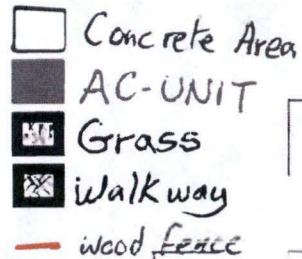 Concrete Area
AC-UNIT
Grass
Walkway
wood fence